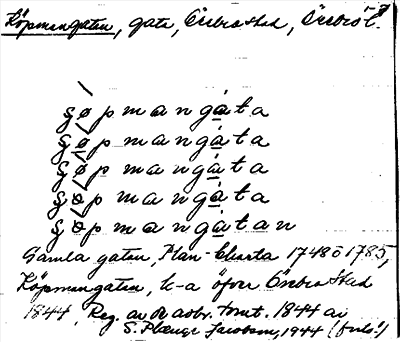 Köpmangatan, gata, Örebro stad, Örebro l.
gøpmangåta
gøpmangåta
gøpmangåta
gøpmangåta
gøpmangåtan
Gamla gatan, Plan-Charta 1748 o 1785,
Köpmangatan, k-a öfver Örebro Stad
1844, Reg. av 1844 av
S. Jacobson, 1944